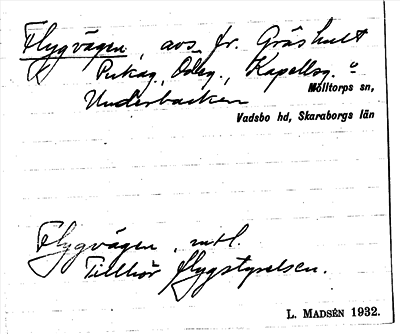 Flygvägen, avs. fr. Gräshult
Pukag., Ödeg., Kapellsg. o
Underbacken
Mölltorps sn,
Vadsbo hd, Skaraborgs län
Flygvägen, mtl.
Tillhör flygstyrelsen.
L. MADSÉN 1932.